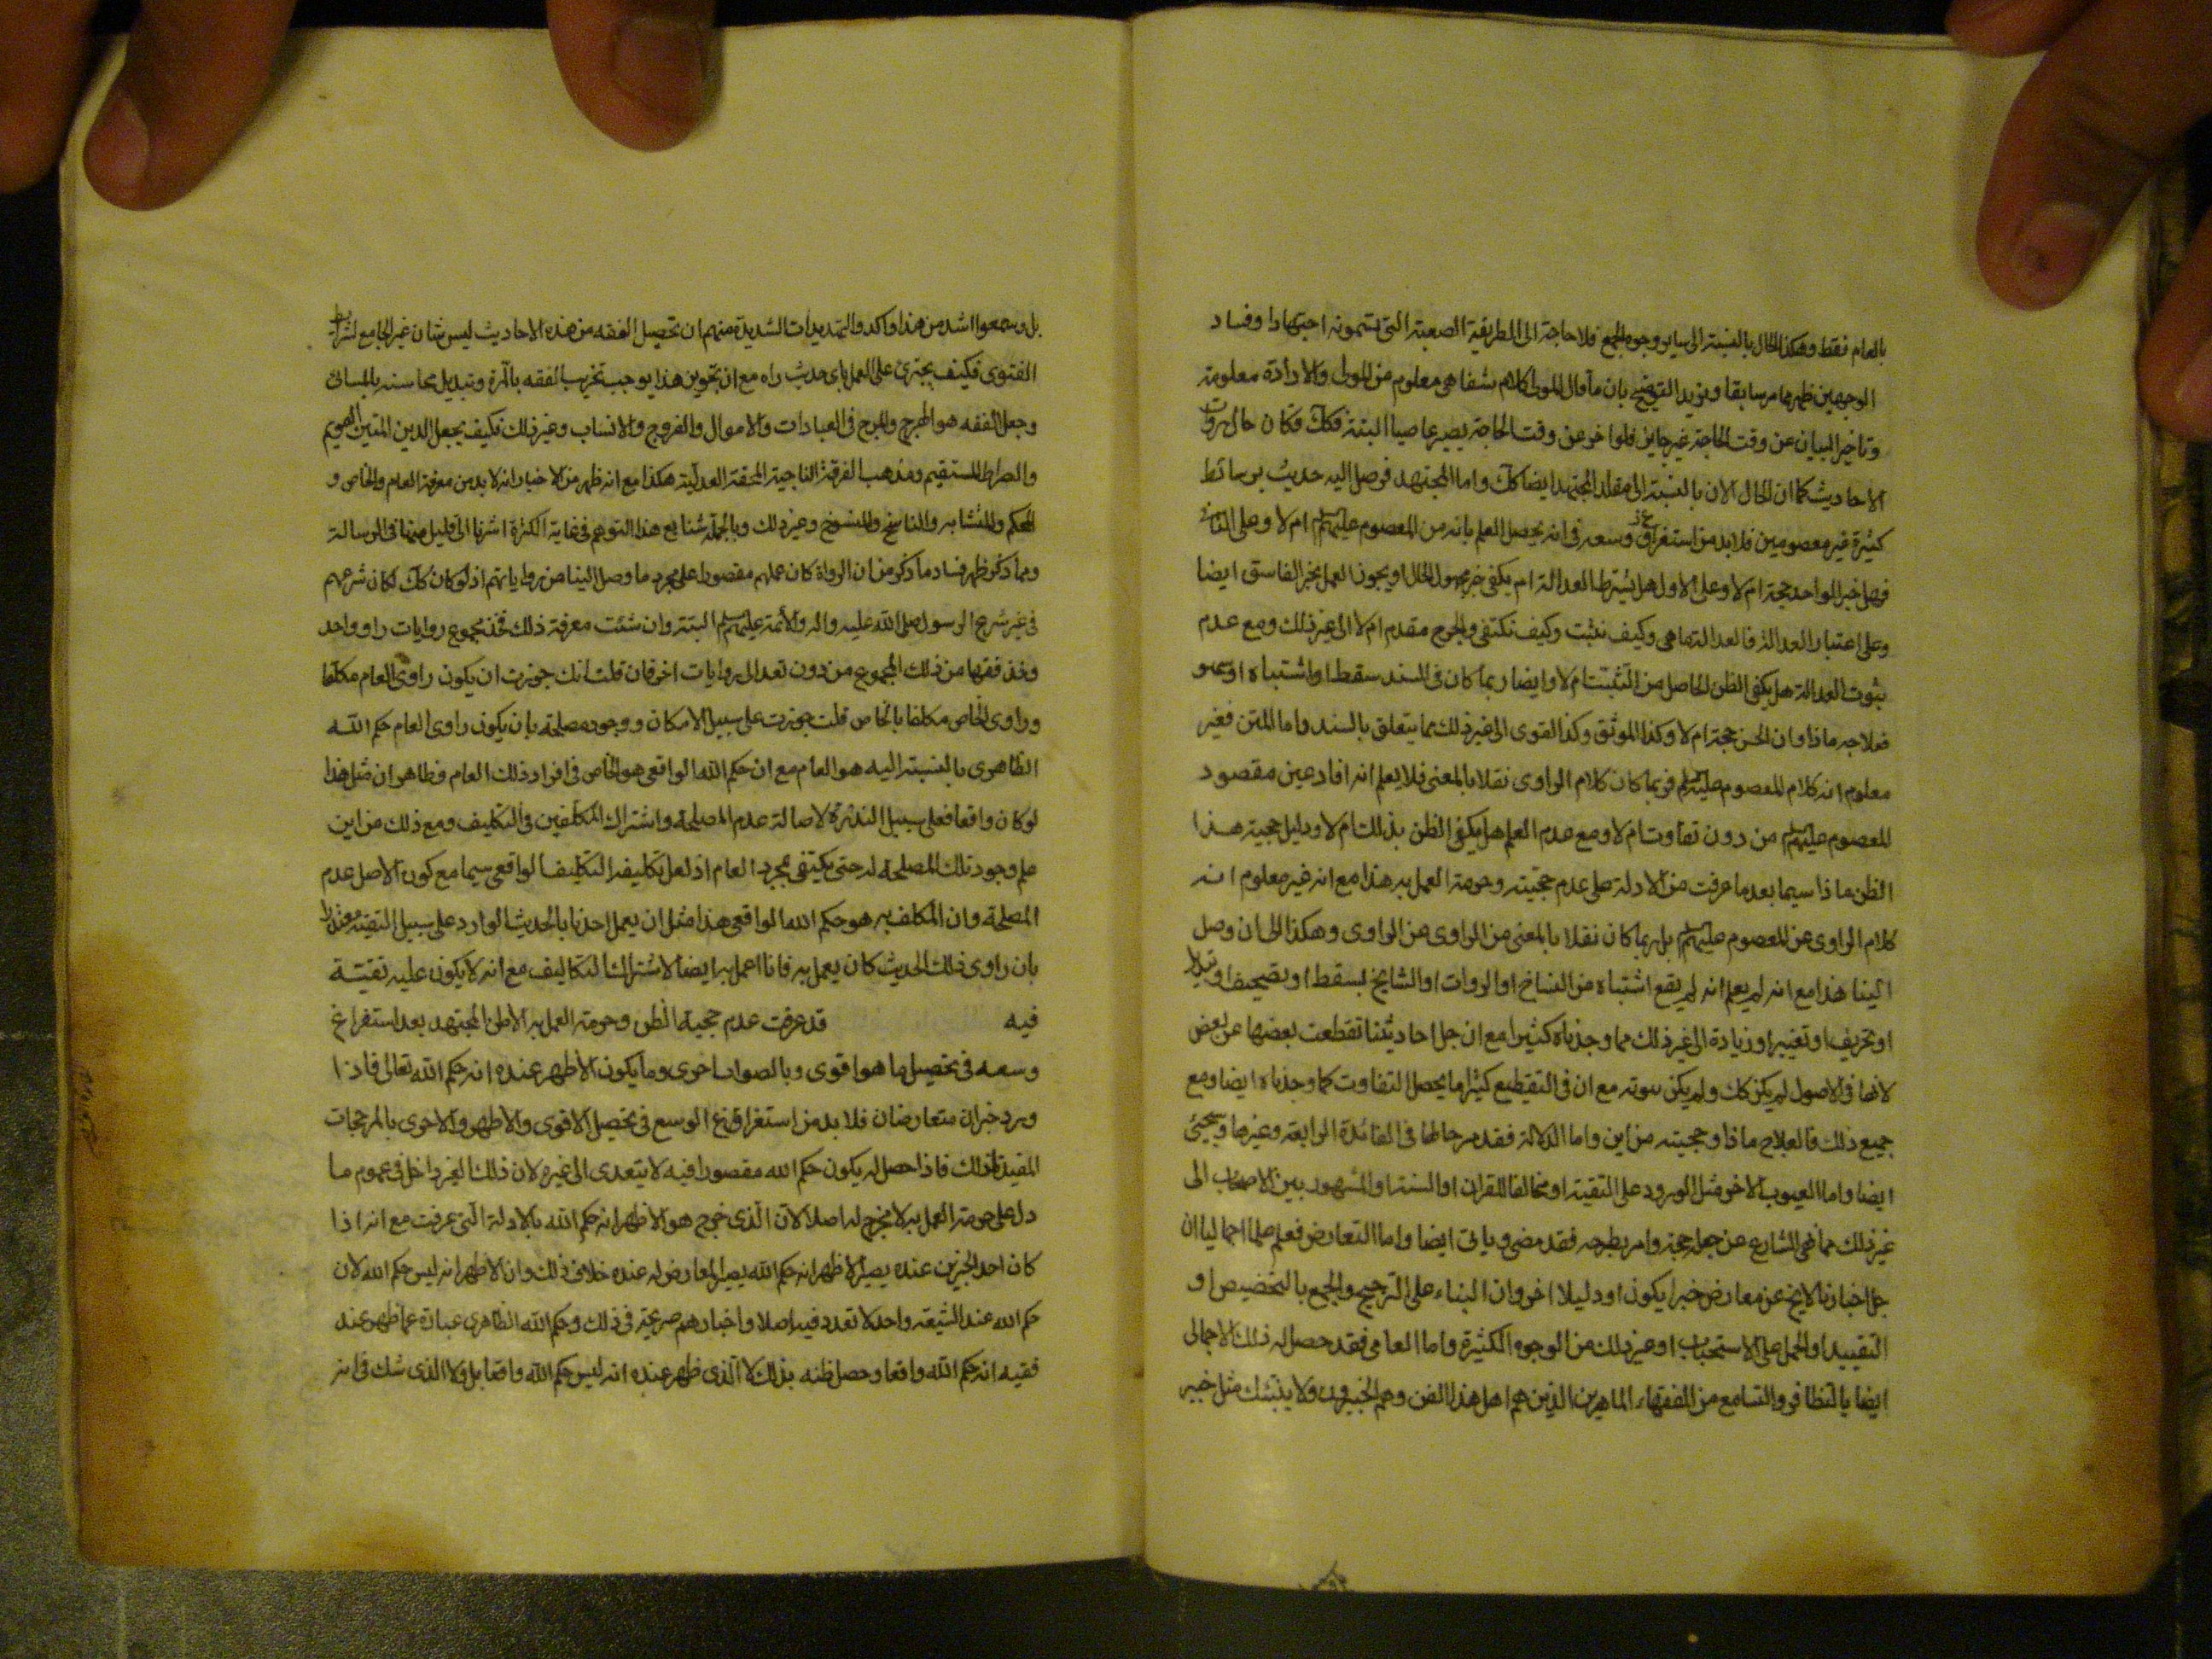 بالعام فقط وهكذا الحال بالنسبة الى ساير وجوه الجمع فلا حاجة الى الطريقة الصعبة التى تسمونه اجتهادا وفساد
الوجهين ظهر مما مر سابقا ونزيد التوضيح بان ما قال المولى كلام شفاهى معلوم من المولى والارادة معلومة
وتاخير البيان عن وقت الحاجة غير جايز فلو اخر عن وقت الحاجة يصير عاصيا البتة فكك فكان حال روات
الاحاديث كما ان الحال الان بالنسبة الى مقلد المجتهد ايضا كك واما المجتهد فوصل اليه حديث بوسائط
كثيرة غير معصومين فلا بد من استفراغ وسعه فى انه يحصل العلم بانه من المعصوم عليه السلم ام لا وعلى الثانى
فهل خبر الواحد حجة ام لا وعلى الاول هل يشترط العدالة ام يكفى خبر مجهول الحال او يجوز العمل بخبر الفاسق ايضا
وعلى اعتبار العدالة فالعدالة ما هى وكيف نثبت وكيف نكتفى والجرح مقدم ام لا الى غير ذلك ومع عدم
ثبوت العدالة هل يكفى الظن الحاصل من التثبت ام لا وايضا ربما كان فى السند سقط او اشتباه او سهو
فعلاجه ماذا وان الحسن حجة ام لا وكذا الموثق وكذا القوى الى غير ذلك مما يتعلق بالسند واما المتن فغير
معلوم انه كلام المعصوم عليه السلم فربما كان كلام الراوى نقلا بالمعنى فلا يعلم انه افاد عين مقصود
المعصوم عليه السلم من دون تفاوت ام لا ومع عدم العلم هل يكفى الظن بذلك ام لا ودليل حجية هذا
الظن ماذا سيما بعد ما عرفت من الادلة على عدم حجيته وحرمة العمل به هذا مع انه غير معلوم انه
كلام الراوى عن المعصوم عليه السلم بل ربما كان نقلا بالمعنى من الراوى عن الراوى وهكذا الى ان وصل
الينا هذا مع انه لم يعلم انه لم يقع اشتباه من النساخ او الروات او المشايخ بسقط او تصحيف او تبديل
او تحريف او تغيير او زيادة الى غير ذلك مما وجدناه كثيرا مع ان جل احاديثنا تقطعت بعضها عن بعض
لانها فى الاصول لم يكن كك ولم يكن مع ان فى التقطيع كثيرا ما يحصل التفاوت كما وجدناه ايضا ومع
جميع ذلك فالعلاج ماذا وحجيته من اين واما الدلالة فقد مر حالها فى الفائدة الرابعة وغيرها وسيجئ
ايضا واما العيوب الاخر مثل الورود على التقية او مخالفا للقران او السنة او المشهور بين الاصحاب الى
غير ذلك مما نهى الشارع عن جعله حجة وامر بطرحه فقد مضى وياتى ايضا واما التعارض فعلم علما اجماليا ان
جل اخبارنا لا يخ عن معارض خبرا يكون او دليلا اخر وان البناء على الترجيح والجمع بالتخصيص او
التقييد او الحمل على الاستحباب او غير ذلك من الوجوه الكثيرة واما العامى فقد حصل له ذلك الاجمالى
ايضا بالتظافر والتسامع من الفقهاء الماهرين الذين هم اهل هذا الفن وهم الخبيرون ولا ينبئك مثل خبير
بل وسمعوا اشد من هذا واكد والتهديدات الشديدة منهم ان تحصيل الفقه من هذه الاحاديث ليس شان غير الجامع لشرايط
الفتوى فكيف يجترئ على العمل باى حديث راه مع ان تجويز هذا يوجب تخريب الفقه بالمرة وتبديل محاسنه بالمساوئ
وجعل الفقه هو الهرج والمرج فى العبادات والاموال والفروج والانساب وغير ذلك فكيف يجعل الدين المتين القويم
والصراط المستقيم ومذهب الفرقة الناجية المحقة العدلية هكذا مع انه ظهر من الاخبار انه لا بد من معرفة العام والخاص و
المحكم والمتشابه والناسخ والمنسوخ وغير ذلك وبالجملة شنايع هذا التوهم فى غاية الكثرة اشرنا الى قليل منها فى الرسالة
ومما ذكر ظهر فساد ما ذكر من ان الرواة كان عملهم مقصورا على مجرد ما وصل الينا من رواياتهم اذ لو كان كك لكان شرعهم
فى غير شرع الرسول صلى الله عليه واله والائمة عليهم السلم البتة وان شئت معرفة ذلك فخذ مجموع روايات راو واحد
وخذ فقها من ذلك المجموع من دون تعد الى روايات اخر فان قلت انك جوزت ان يكون راوى العام مكلفا
وراوى الخاص مكلفا بالخاص قلت جوزت على سبيل الامكان ووجود مصلحة بان يكون راوى العام حكم الله
الظاهرى بالنسبة اليه هو العام مع ان حكم الله الواقعى هو الخاص فى افراد ذلك العام فظاهر ان مثل هذا
لو كان واقعا فعلى سبيل الندرة لاصالة عدم المصلحة واشتراك المكلفين فى التكليف ومع ذلك من اين
علم وجود تلك المصلحة له حتى يكتفى بمجرد العام اذ لعل تكليفه التكليف الواقعى سيما مع كون الاصل عدم
المصلحة وان المكلف به هو حكم الله الواقعى هذا مثل ان يعمل احدنا بالحديث الوارد على سبيل التقية معتذرا
بان راوى ذلك الحديث كان يعمل به فانا اعمل به ايضا لاشتراك التكاليف مع انه لا يكون عليه تقية
فيه قد عرفت عدم حجية الظن وحرمة العمل به الا ظن المجتهد بعد استفراغ
وسعه فى تحصيل ما هو اقوى وبالصواب احرى وما يكون الاظهر عنده انه حكم الله تعالى فاذا
ورد خبران متعارضان فلا بد من استفراغ الوسع فى تحصيل الاقوى والاظهر والاحرى بالمرجحات
المفيدة لذلك فاذا حصل له يكون حكم الله مقصورا فيه لا يتعدى الى غيره لان ذلك الغير داخل فى عموم ما
دل على حرمة العمل به لا مخرج له اصلا لان الذى خرج هو الاظهر انه حكم الله بالادلة التى عرفت مع انه اذا
كان احد الخبرين عنده يصير الاظهر انه حكم الله يصير المعارض له عنده خلاف ذلك وان الاظهر انه ليس حكم الله لان
حكم الله عند الشيعة واحد لا تعدد فيه اصلا واخبارهم صريحة فى ذلك وحكم الله الظاهرى عبارة عما ظهر عند
فقيه انه حكم الله واقعا وحصل ظنه بذلك لا الذى ظهر عنده انه ليس حكم الله واقعا بل ولا الذى شك فى انه